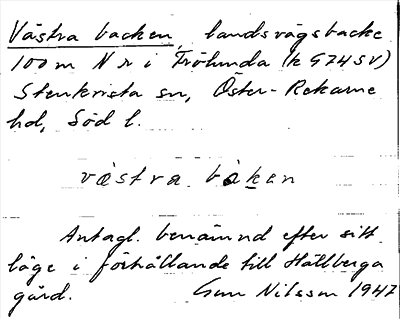 Västra backen, landsvägsbacke
100 m N r i Fröhunda (k G74SV)
Stenkvista sn, Öster-Rekarne
hd, Söd l.
västra baken
Antagl. benämnd efter sitt
läge i förhållande till Hällberga
gård. Gun Nilsson 1947